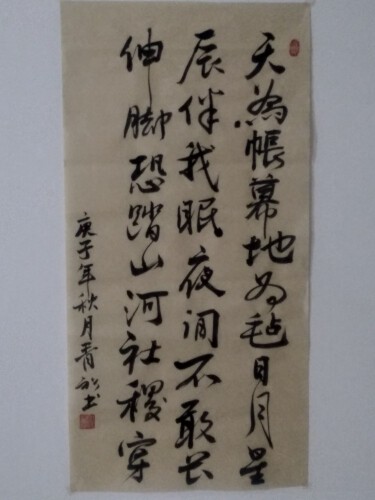 天為帳幕地為毡日月星
辰伴我眠夜间不敢长
伸脚恐踏山河社稷穿
庚子年秋月青 书